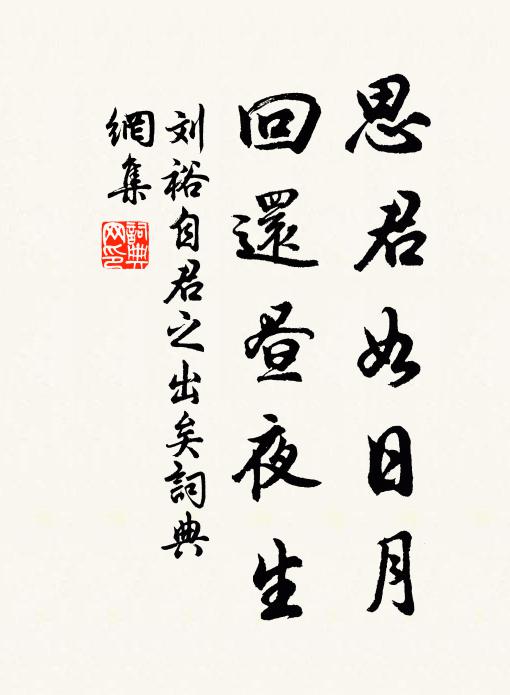 思君如日月
回還昼夜生
刘裕自君之出矣詞典
網集
詞典
网印